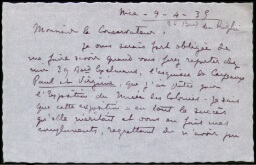 Nice - 9-4-35
Monsieur le Conservateur,
Je vous serais fort obligée de
me faire savoir quand vous ferez reporter chez
moi Bd l'esquisse de Carpeaux
Paul et Virginie, que j'ai prêtée pour
l'Exposition du Musée des Colonies - Je sais
que cette exposition a eu tout le succès
qu'elle méritait et vous en fais mes
compliments, regrettant de n'avoir pu